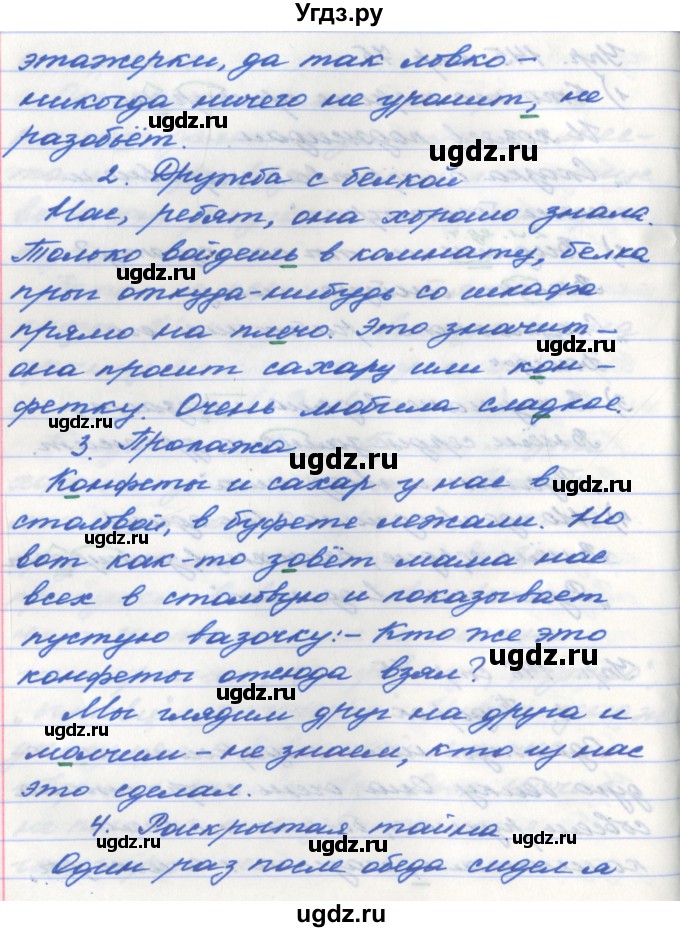 Угдз.ру
этажерки, да так ловко -
никогда ничего не уронит, не
ugdz.ru
разобьёт.
ugdz.ru
2. Дружба с белкой
Нас, ребят, она хорошо знала.
ugdz.ru
Только войдешь в комнату, белка
ugdz.ru
прыг откуда-нибудь со шкафа
прямо на плечо. Это значит -
ugdz.ru
она просит сахару или кон-
ugdz.ru
фетку. Очень любила сладкое.
ugdz.ru
3. Пропажа
ugdz.ru
Конфеты и сахар у нас в
ugdz.ru
столовой, в буфете лежали. Но
ugdz.ru
вот как-то зовёт мама нас
всех в столовую и показывает
пустую вазочку:- Кто же это
ugdz.ru
конфеты отсюда взял?
ugdz.ru
Мы глядим друг на друга и
ugdz.ru
молчим - не знаем, кто из нас
это сделал.
4. Раскрытая тайна
ugdz.ru ugdz.ru
Один раз после обеда сидел я
ugdz.ru
ugdz.ru